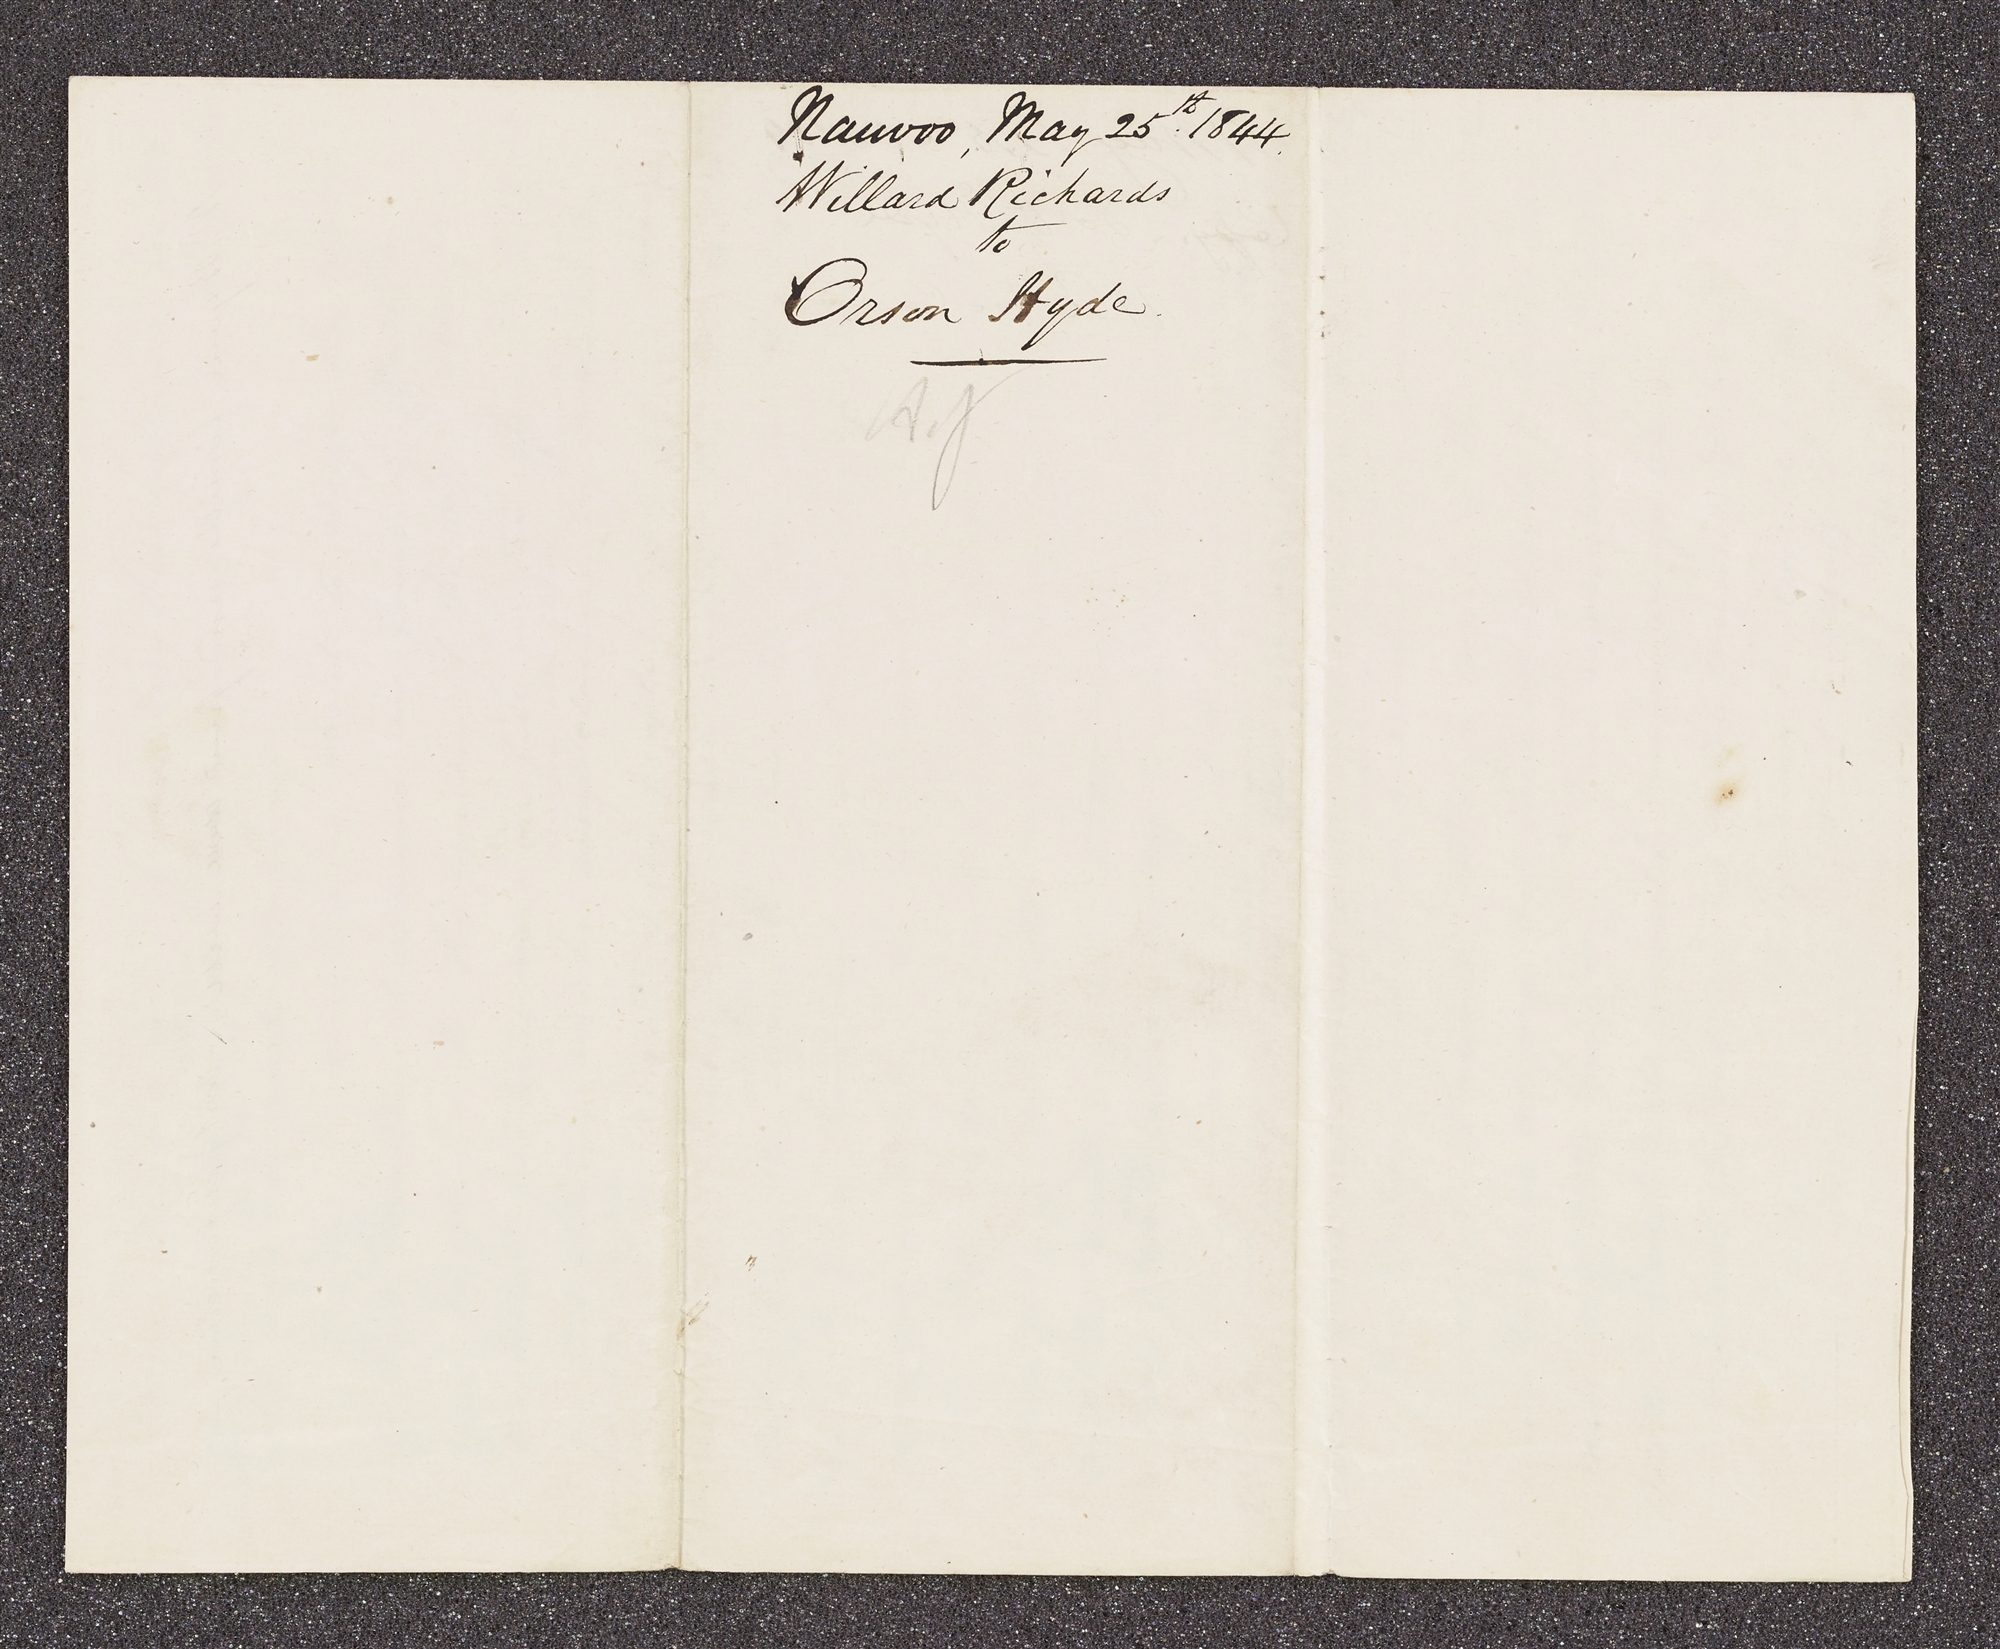 Nauvoo, May 25th. 1844.
Willard Richards
to
Orson Hyde.